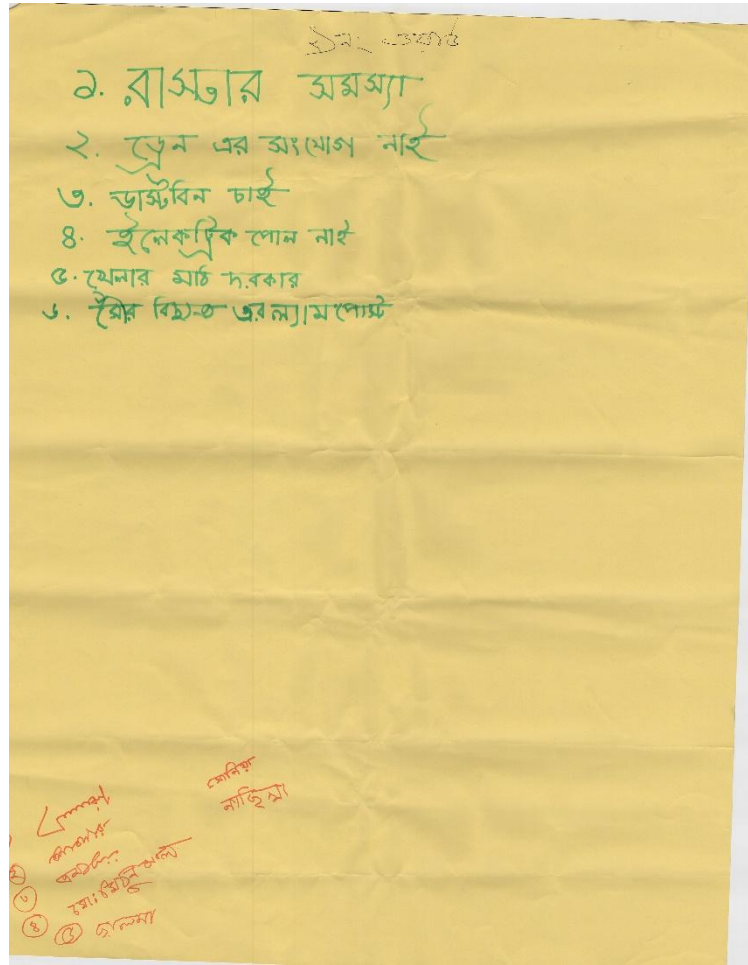 ১নং ওয়ার্ড
১. রাস্টার সমস্যা
২. ড্রেন এর সংযোগ নাই
৩. ডাস্টবিন চাই
৪. ইলেকট্রিক পোল নাই
৫. খেলার মাঠ দরকার
৬. সৌর বিদ্যুত এর ল্যাম পোস্ট
সোনিয়া
নাছিমা
২
৩
৪
৫ ছালমা